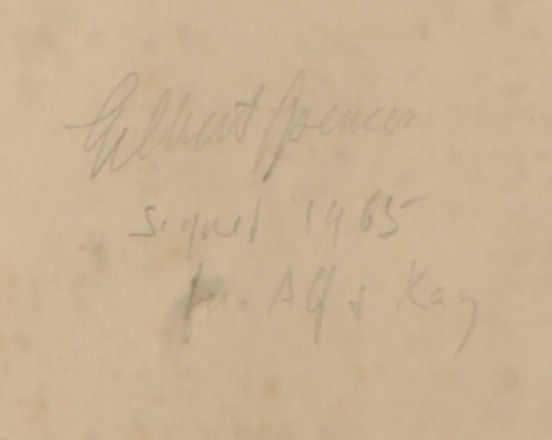 Gilbert Spencer
Signed 1965
for Alf & Kay